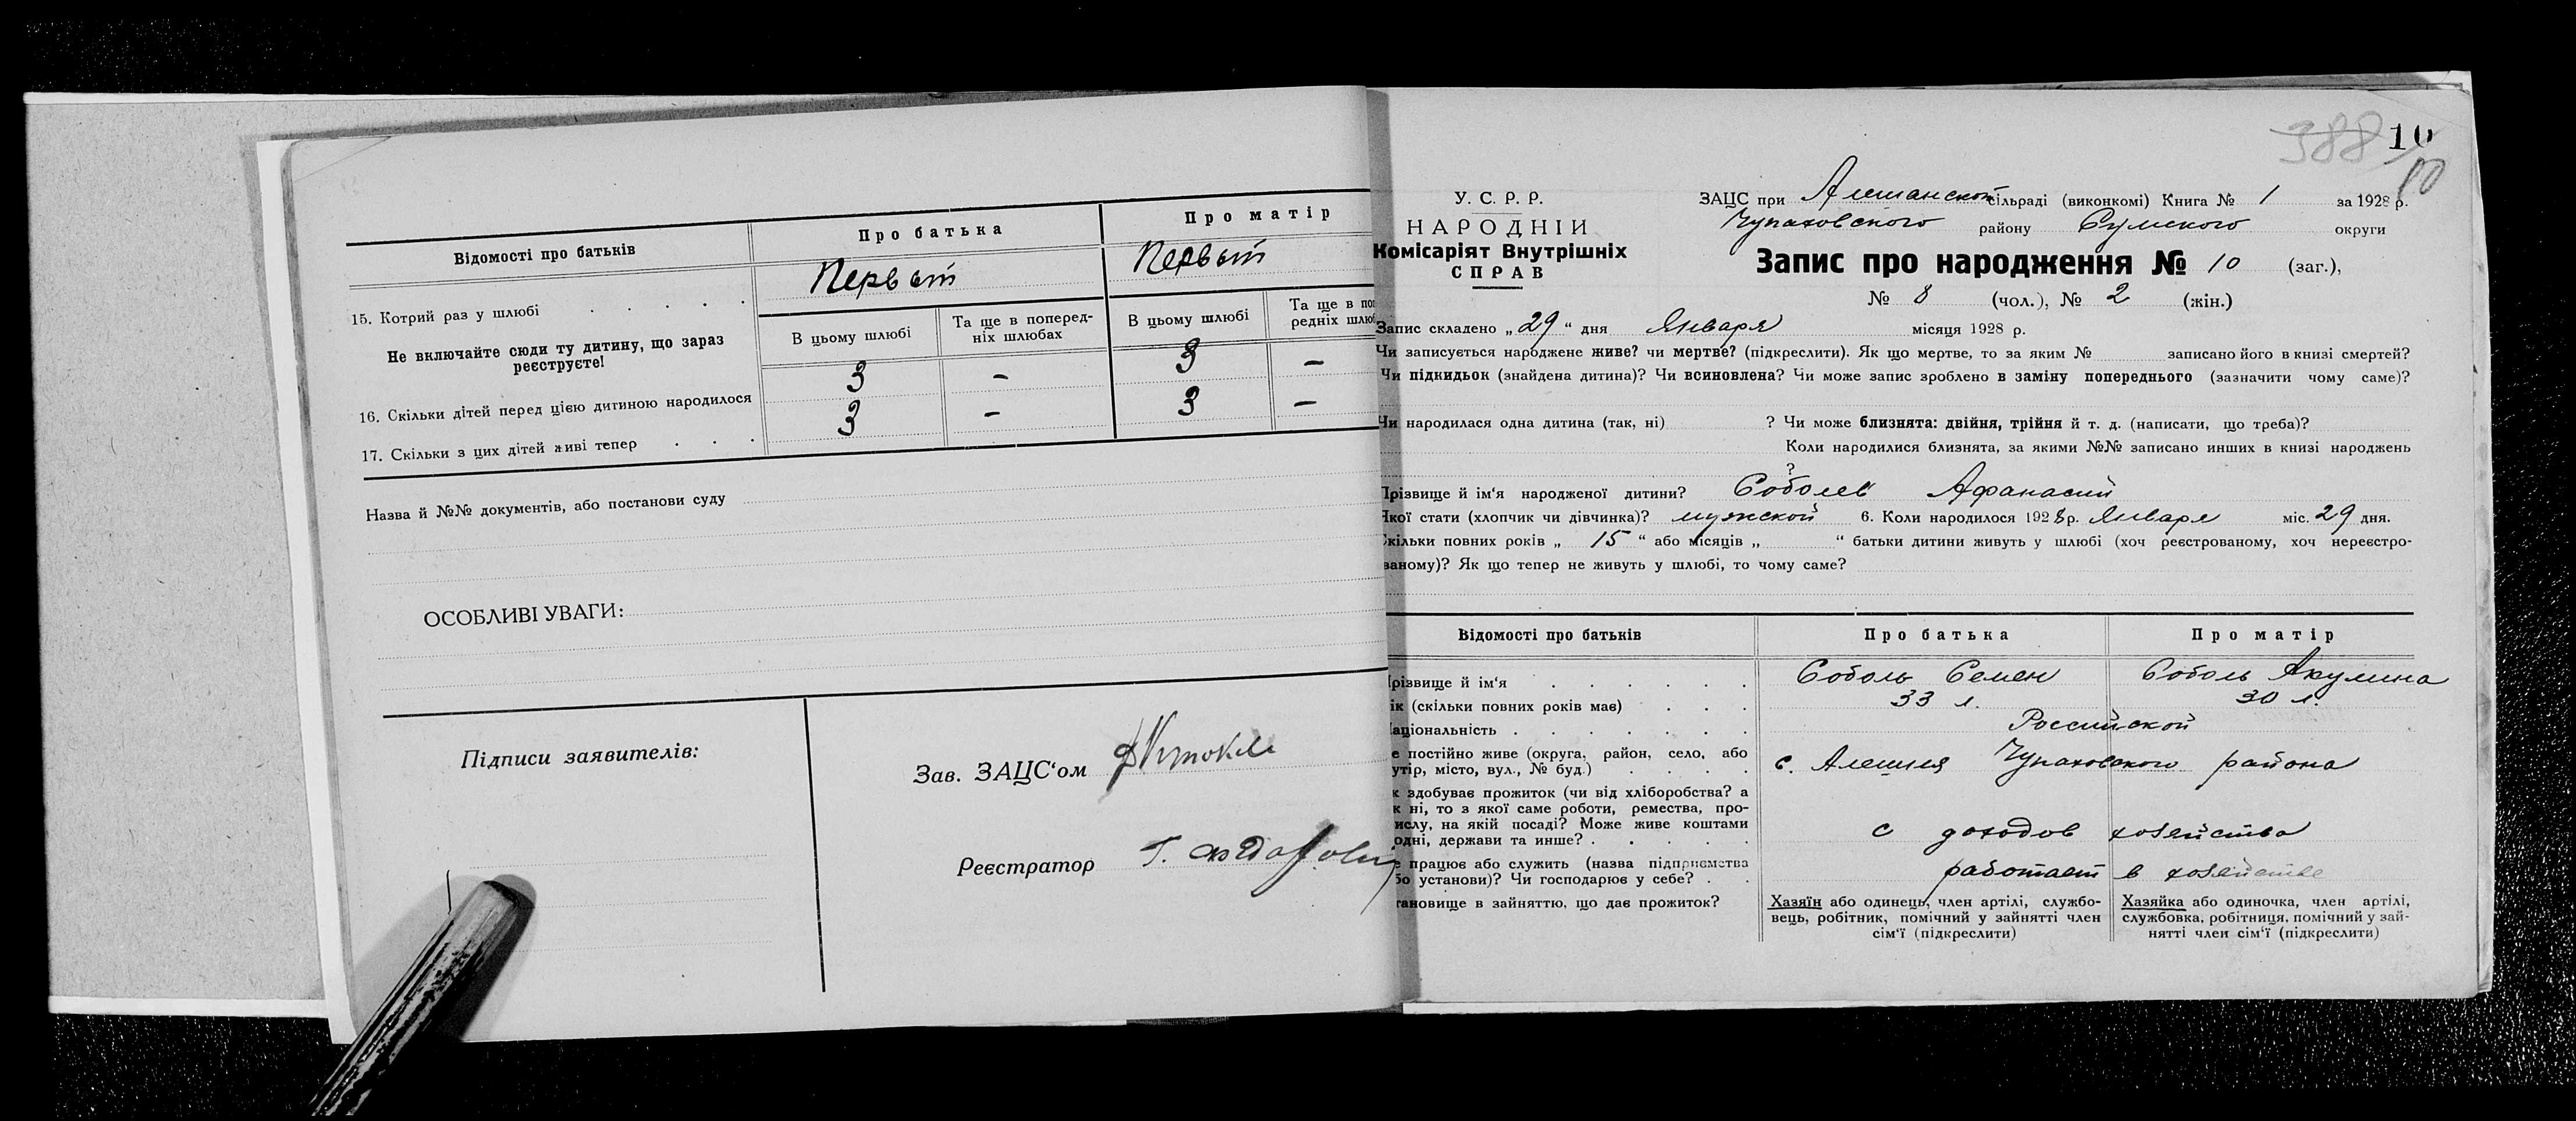 Відомості про батьків
Про батька
Про матір
15. Котрий раз у шлюбі
Первый
Первый
Не включайте сюди ту дитину, що зараз
реєструєте!
В цьому шлюбі
Та ще в поперед-
ніх шлюбах
В цьому шлюбі
Та ще в по
редніх шлю
16. Скільки дітей перед цією дитиною народилося
3 — 3 —
17. Скільки з цих дітей живі тепер
3 — 3 —
Назва й №№ документів, або постанови суду
ОСОБЛИВІ УВАГИ:
Підписи заявителів:
Зав. ЗАЦС'ом
Реєстратор Г.
388 10
10
У. С. Р. Р.
НАРОДНІЙ
Комісаріят Внутрішніх
СПРАВ
ЗАЦС при Алешанской сільраді (виконкомі) Книга № 1 за 1928 р.
Чупаховского району Сумского округи
Запис про народження № 10 (заг.),
№ 8 (чол.), № 2 (жін.)
Запис складено „29“ дня Января місяця 1928 р.
Чи записується народжене живе? чи мертве? (підкреслити). Як що мертве, то за яким № записано його в книзі смертей?
Чи підкидьок (знайдена дитина)? Чи всиновлена? Чи може запис зроблено в заміну попереднього (зазначити чому саме)?
Чи народилася одна дитина (так, ні) ? Чи може близнята: двійня, трійня й т. д. (написати, що треба)?
Коли народилися близнята, за якими №№ записано инших в книзі народжень
?
Прізвище й ім'я народженої дитини? Соболев Афанасий
Якої стати (хлопчик чи дівчинка)? мужской 6. Коли народилося 1928 р. Января міс. 29 дня.
Скільки повних років „ 15 “ або місяців „ “ батьки дитини живуть у шлюбі (хоч реєстрованому, хоч нереєстро-
ваному)? Як що тепер не живуть у шлюбі, то чому саме?
Відомості про батьків
Про батька
Про матір
Прізвище й ім'я
Соболь Семен
Соболь Акулина
ік (скільки повних років має)
33 л.
30 л.
аціональність
Российской
е постійно живе (округа, район, село, або
утір, місто, вул., № буд.)
с. Алешня Чупаховского района
к здобуває прожиток (чи від хліборобства? а
к ні, то з якої саме роботи, ремества, про-
ислу, на якій посаді? Може живе коштами
одні, держави та инше?
с доходов хозяйства
е працює або служить (назва підприємства
бо установи)? Чи господарює у себе?
работает в хозяйстве
тановище в зайняттю, що дає прожиток?
Хазяїн або одинець, член артілі, службо-
вець, робітник, помічний у зайнятті член
сім'ї (підкреслити)
Хазяйка або одиночка, член артілі,
службовка, робітниця, помічний у зай-
нятті член сім'ї (підкреслити)